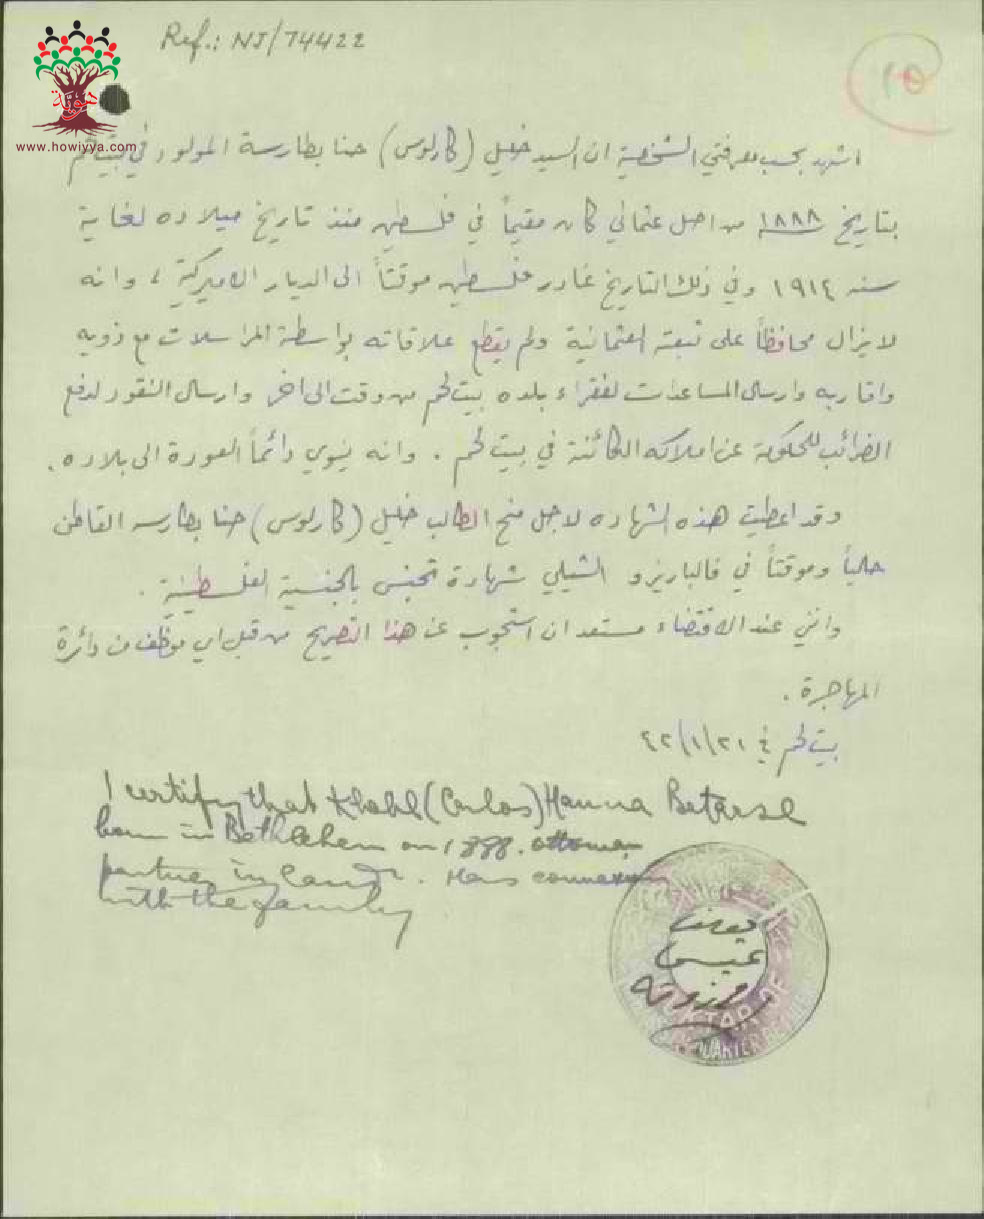 Ref.: NJ/74422
١٥
هوية
www.howiyya.com
اشهد بحسب معرفتي الشخصية ان السيد خليل (كارلوس) حنا بطارسة المولود في بيت لحم
بتاريخ ١٨٨٨ من اصل عثماني كان مقيماً في فلسطين منذ تاريخ ميلاده لغاية
سنه ١٩١٤ وفي ذلك التاريخ غادر فلسطين موقتاً الى الديار الاميركية ، وانه
لا يزال محافظاً على تبعته العثمانية ولم يقطع علاقاته بواسطة المراسلات مع ذويه
واقاربه وارسال المساعدات لفقراء بلده بيت لحم من وقت الى اخر وارسال النقود لدفع
الضرائب للحكومة عن املاكه الكائنة في بيت لحم . وانه ينوي دائماً العودة الى بلاده .
وقد اعطيت هذه الشهاده لاجل منح الطالب خليل (كارلوس) حنا بطارسه القاطن
حالياً وموقتاً في فالباريزو الشيلي شهادة تجنس بالجنسية الفلسطينية .
وانني عند الاقتضاء مستعد ان استجوب عن هذا التصريح من قبل اي موظف من دائرة
المهاجرة .
بيت لحم في ٤٢/١/٢١
I certify that Khalil (Carlos) Hanna Batarse
born in Bethlehem on 1888. ottoman
with the family
عيسى
MUKTAR OF
QUARTER